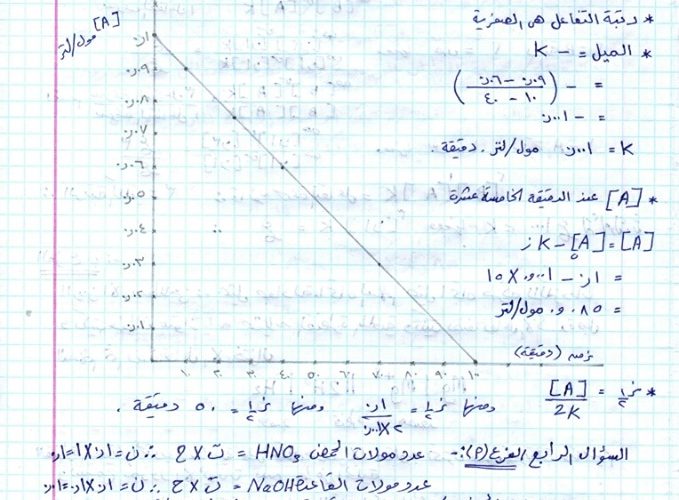 * رتبة التفاعل هي الصفرية
* الميل = - K
= - (٠,٠٩ - ٠,٠٦ / ١٠ - ٤٠)
= - ٠,٠٠١
K = ٠,٠٠١ مول/لتر . دقيقة .
* [A] عند الدقيقة الخامسة عشرة
[A] = [A]₀ - K ز
= ٠,١ - ٠,٠٠١ × ١٥
= ٠,٠٨٥ مول/لتر
[A] مول/لتر
٠,١
٠,٠٩
٠,٠٨
٠,٠٧
٠,٠٦
٠,٠٥
٠,٠٤
٠,٠٣
٠,٠٢
٠,٠١
١٠ ٢٠ ٣٠ ٤٠ ٥٠ ٦٠ ٧٠ ٨٠ ٩٠ ١٠٠
زمن (دقيقة)
* ز½ = [A] / 2K ومنها ز½ = ٠,١ / ٢×٠,٠٠١ ومنها ز½ = ٥٠ دقيقة .
السؤال الرابع الفرع (٢):- عدد مولات الحمض HNO₃ = ت × ح
عدد مولات القاعدة NaOH = ت × ح